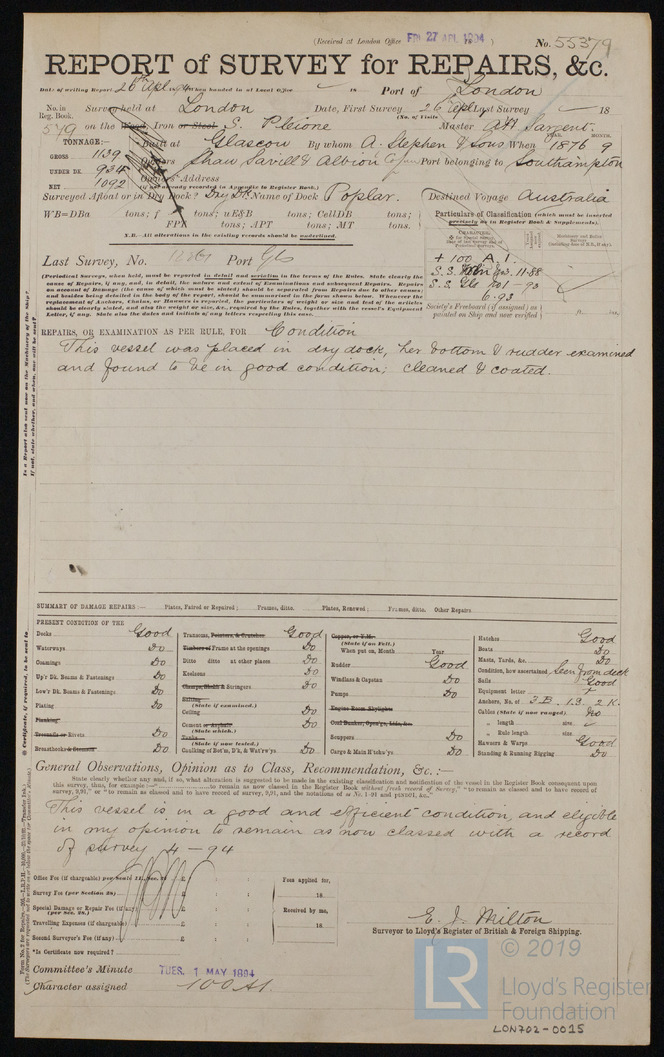 (Received at London Office FRI 27 APL 1894 )
No. 55379
REPORT of SURVEY for REPAIRS, &c.
Date of writing Report 26th Apl 1894 When handed in at Local Office 18 Port of London
No. in Reg. Book. Survey held at London Date, First Survey 26 Apl Last Survey 18
(No. of Visits
579 on the Wood, Iron or Steel S. Pleione Master A.H. Sargent
TONNAGE:— Built at Glasgow By whom A. Stephen & Sons When 1876 9
YEAR. MONTH.
GROSS 1139 Owners Shaw Savill & Albion Port belonging to Southampton
UNDER DK. 934 Owners' Address
NET 1092 (if not already recorded in Appendix to Register Book.)
Surveyed Afloat or in Dry Dock? Dry Dk Name of Dock Poplar. Destined Voyage Australia
WB=DBa tons; f tons; uE&B tons; CellDB tons;
FPT tons; APT tons; MT tons.
N.B.—All alterations in the existing records should be underlined.
Particulars of Classification (which must be inserted precisely as in Register Book & Supplements).
+ 100 A.1.
S.S. No. 3. 11.88
S.S. Gls No 1 - 93
6.93
Society's Freeboard (if assigned) as painted on Ship and now verified
Last Survey, No. Port Gls
(Periodical Surveys, when held, must be reported in detail and seriatim in the terms of the Rules. State clearly the cause of Repairs, if any, and, in detail, the nature and extent of Examinations and subsequent Repairs. Repairs on account of Damage (the cause of which must be stated) should be separated from Repairs due to other causes; and besides being detailed in the body of the report, should be summarised in the form shown below. Whenever the replacement of Anchors, Chains, or Hawsers is reported, the particulars of weight or size and test of the articles should be clearly stated, and also the weight or size, &c., required by the Rules, together with the vessel's Equipment Letter, if any. State also the dates and initials of any letters respecting this case.
REPAIRS, OR EXAMINATION AS PER RULE, FOR Condition
This vessel was placed in dry dock, her bottom & rudder examined
and found to be in good condition; cleaned & coated.
SUMMARY OF DAMAGE REPAIRS:— Plates, Faired or Repaired; Frames, ditto. Plates, Renewed; Frames, ditto. Other Repairs
PRESENT CONDITION OF THE
Decks Good
Waterways Do
Coamings Do
Up'r Dk. Beams & Fastenings Do
Low'r Dk. Beams & Fastenings Do
Plating Do
Planking
Treenails or Rivets Do
Breasthooks & Stemson Do
Transoms, Pointers, & Crutches Good
Timbers or Frame at the openings Do
Ditto ditto at other places Do
Keelsons Do
Clamps, Shelfs & Stringers Do
Ceiling Do
(State if examined.)
Cement or Asphalt Do
(State which.)
Tanks
(State if now tested.)
Caulking of Bot'm, D'k, & Wat'rw'ys Do
Copper, or Y.M.
(State if on Felt.)
When put on, Month Year
Rudder Good
Windlass & Capstan Do
Pumps Do
Engine Room Skylights
Coal Bunker, Open'gs, Lids, &c.
Scuppers Do
Cargo & Main H'tchw'ys Do
Hatches Good
Boats Do
Masts, Yards, &c. Do
Condition, how ascertained Seen from deck
Sails Good
Equipment letter
Anchors, No. of 3 B. 1 S. 2 K.
Cables (State if now ranged) No
„ length size
„ Rule length size
Hawsers & Warps Good
Standing & Running Rigging Do
General Observations, Opinion as to Class, Recommendation, &c.:—
This vessel is in a good and efficient condition, and eligible
in my opinion to remain as now classed with a record
of survey 4 - 94
Office Fee (if chargeable) per Scale II., Sec. 29 £ : : Fees applied for,
Survey Fee (per Section 28) £ : : 18
Special Damage or Repair Fee (if any) £ : : Received by me,
(per Sec. 28.)
Travelling Expenses (if chargeable) £ : : 18
Second Surveyor's Fee (if any) £ : :
*Is Certificate now required?
E. J. Milton
Surveyor to Lloyd's Register of British & Foreign Shipping.
Committee's Minute TUES. 1 MAY 1894
Character assigned 100 A1.
LR
© 2019
Lloyd's Register
Foundation
LON702-0015